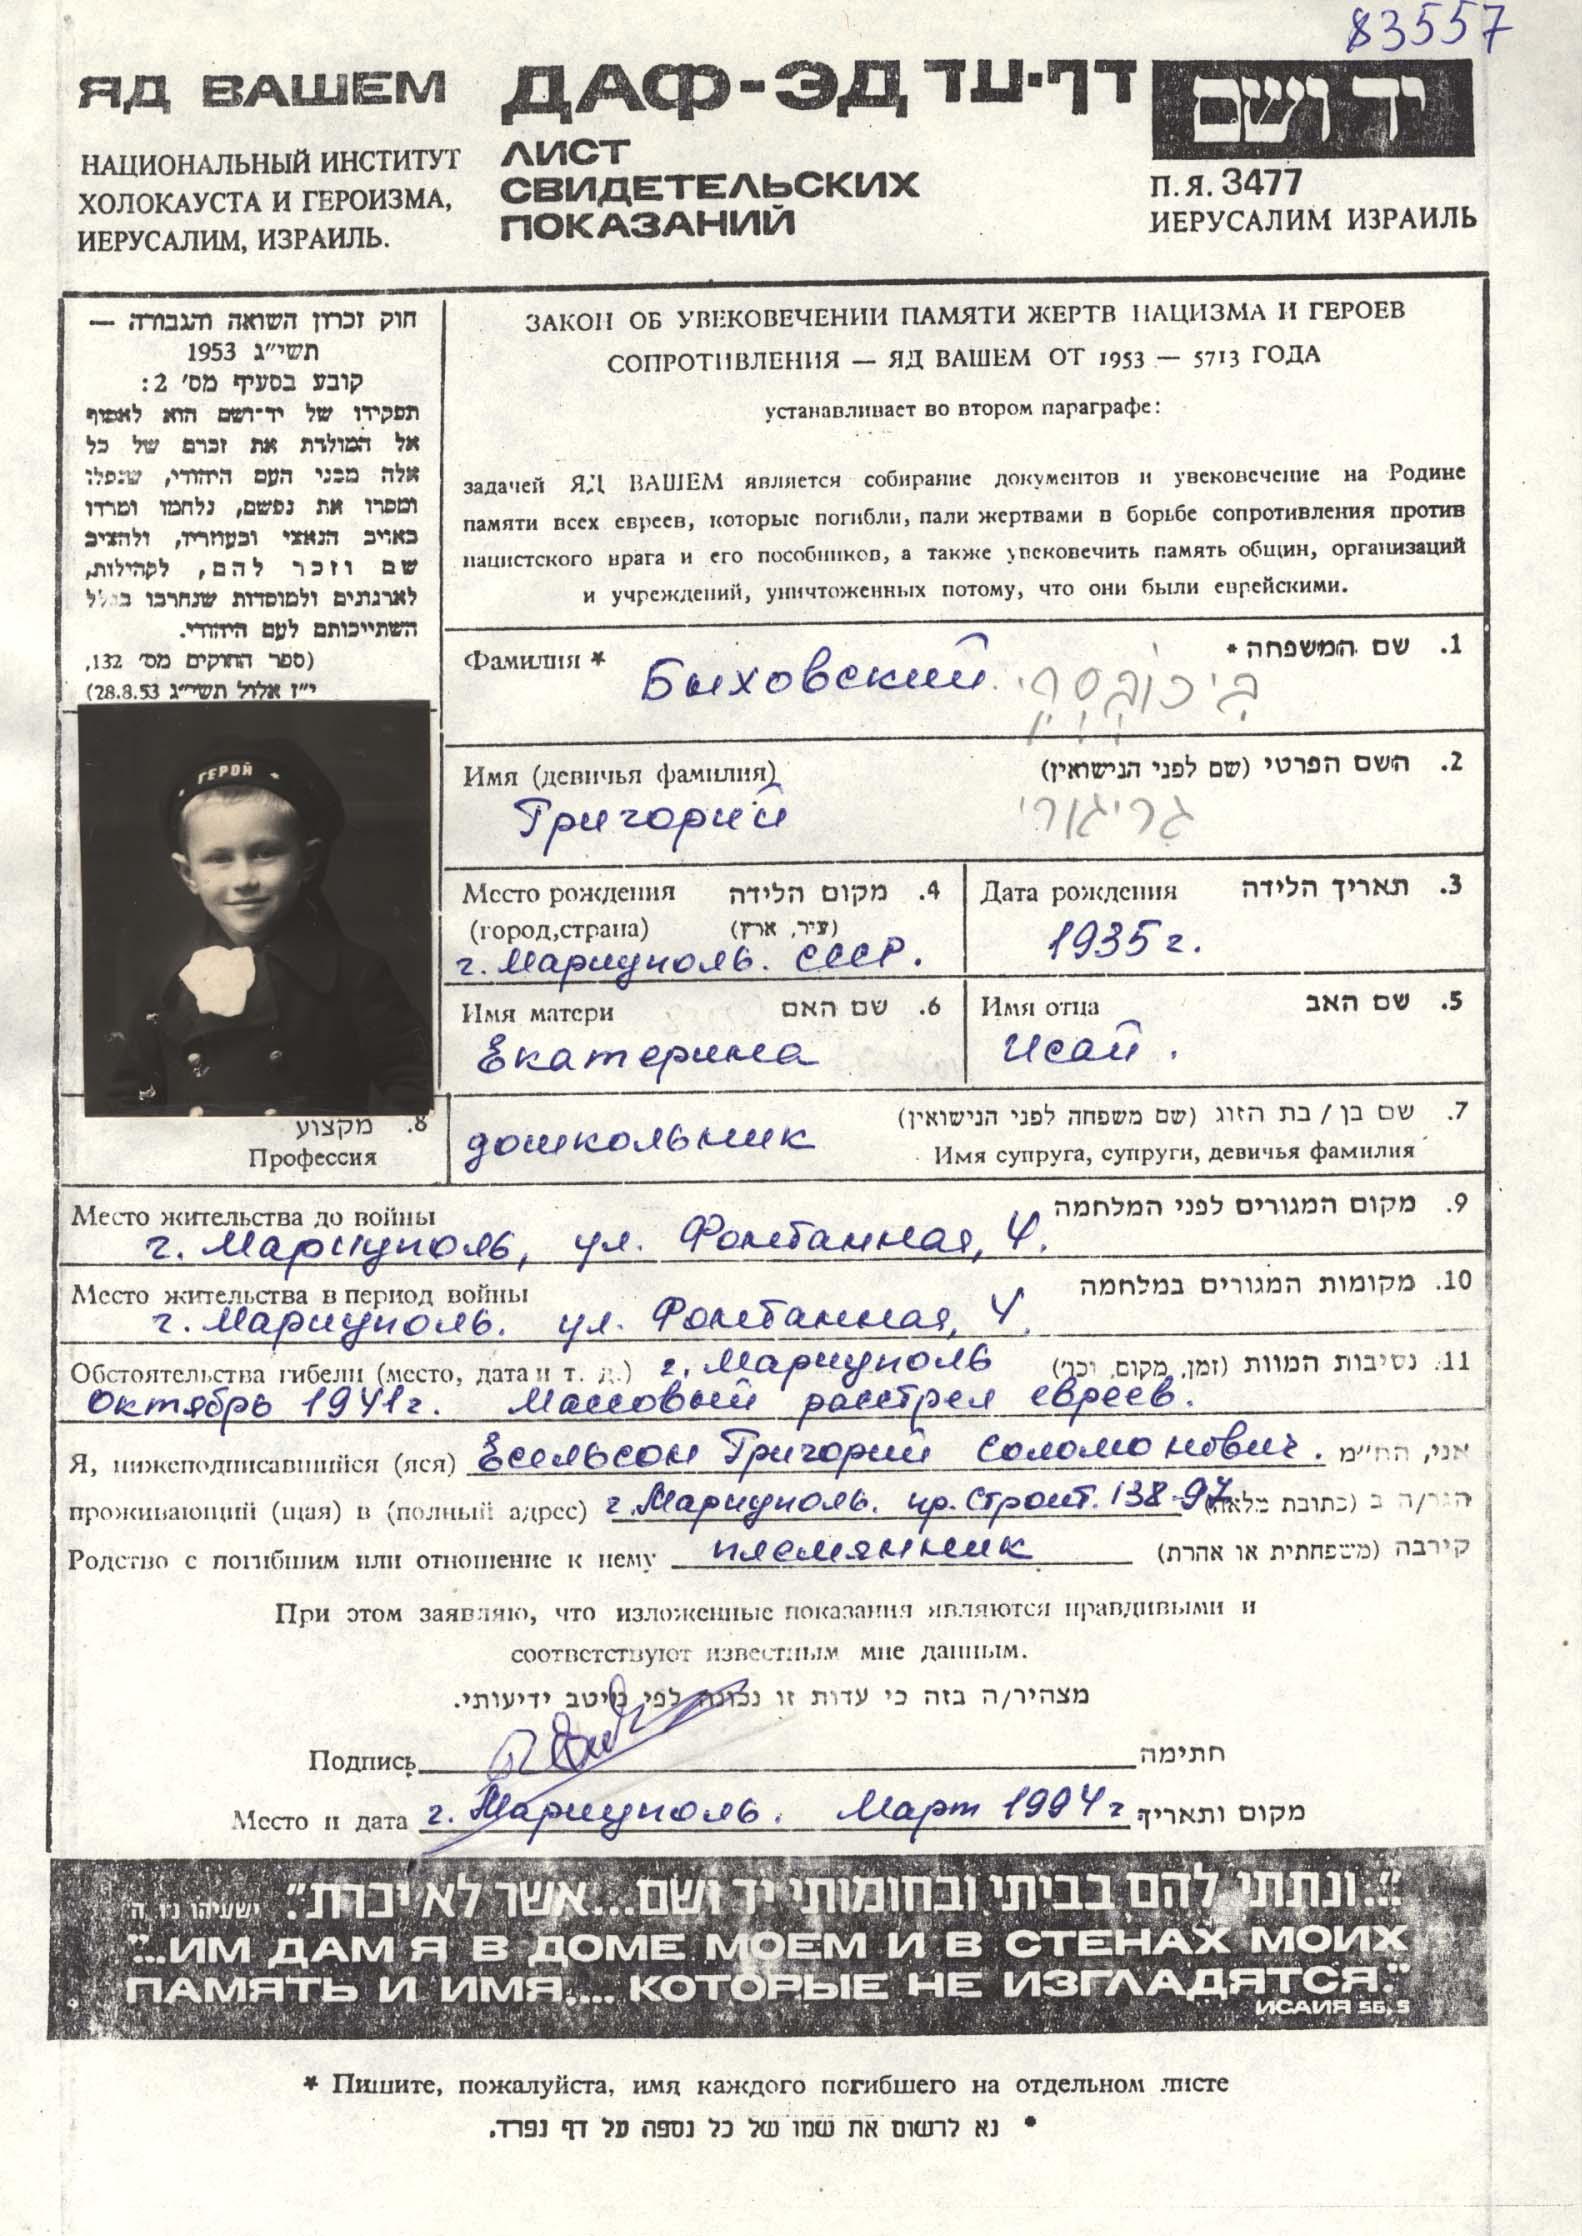 83557
ЯД ВАШЕМ
ДАФ-ЭД דף-עד
יד ושם
НАЦИОНАЛЬНЫЙ ИНСТИТУТ
ХОЛОКАУСТА И ГЕРОИЗМА,
ИЕРУСАЛИМ, ИЗРАИЛЬ.
ЛИСТ
СВИДЕТЕЛЬСКИХ
ПОКАЗАНИЙ
П.Я. 3477
ИЕРУСАЛИМ ИЗРАИЛЬ
חוק זכרון השואה והגבורה —
תשי"ג 1953
קובע בסעיף מס' 2:
תפקידו של יד-ושם הוא לאסוף
אל המולדת את זכרם של כל
אלה מבני העם היהודי, שנפלו
ומסרו את נפשם, נלחמו ומרדו
באויב הנאצי ובעוזריו, ולהציב
שם וזכר להם, לקהילות,
לארגונים ולמוסדות שנחרבו בגלל
השתייכותם לעם היהודי.
(ספר החוקים מס' 132,
י"ז אלול תשי"ג 28.8.53)
ГЕРОЙ
ЗАКОН ОБ УВЕКОВЕЧЕНИИ ПАМЯТИ ЖЕРТВ НАЦИЗМА И ГЕРОЕВ
СОПРОТИВЛЕНИЯ — ЯД ВАШЕМ ОТ 1953 — 5713 ГОДА
устанавливает во втором параграфе:
задачей ЯД ВАШЕМ является собирание документов и увековечение на Родине
памяти всех евреев, которые погибли, пали жертвами в борьбе сопротивления против
нацистского врага и его пособников, а также увековечить память общин, организаций
и учреждений, уничтоженных потому, что они были еврейскими.
Фамилия * Быховский ביכובסקי 1. שם המשפחה *
Имя (девичья фамилия) 2. השם הפרטי (שם לפני הנישואין)
Григорий גריגורי
Место рождения 4. מקום הלידה
(город,страна) (עיר, ארץ)
г. Мариуполь. СССР.
Дата рождения 3. תאריך הלידה
1935 г.
Имя матери 6. שם האם
Екатерина
Имя отца 5. שם האב
Исай.
8. מקצוע
Профессия
дошкольник
7. שם בן / בת הזוג (שם משפחה לפני הנישואין)
Имя супруга, супруги, девичья фамилия
Место жительства до войны 9. מקום המגורים לפני המלחמה
г. Мариуполь, ул. Фонтанная, 4.
Место жительства в период войны 10. מקומות המגורים במלחמה
г. Мариуполь. ул. Фонтанная, 4.
Обстоятельства гибели (место, дата и т. д.) г. Мариуполь 11. נסיבות המוות (זמן, מקום, וכו')
Октябрь 1941г. Массовый расстрел евреев.
Я, нижеподписавшийся (яся) Есельсон Григорий Соломонович. אני, הח"מ
проживающий (щая) в (полный адрес) г. Мариуполь. пр. Строит. 138-97 הגר/ה ב (כתובת מלאה)
Родство с погибшим или отношение к нему племянник קירבה (משפחתית או אחרת)
При этом заявляю, что изложенные показания являются правдивыми и
соответствуют известным мне данным.
מצהיר/ה בזה כי עדות זו נכונה לפי מיטב ידיעותי.
Подпись חתימה
Место и дата г. Мариуполь. Март 1994г מקום ותאריך
"...ונתתי להם בביתי ובחומותי יד ושם...אשר לא יכרת". ישעיהו נו, ה
"...ИМ ДАМ Я В ДОМЕ МОЕМ И В СТЕНАХ МОИХ
ПАМЯТЬ И ИМЯ.... КОТОРЫЕ НЕ ИЗГЛАДЯТСЯ."
ИСАИЯ 56,5
* Пишите, пожалуйста, имя каждого погибшего на отдельном листе
* נא לרשום את שמו של כל נספה על דף נפרד.